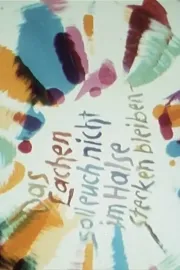 Das
Lachen
soll euch nicht
im Halse
stecken bleiben